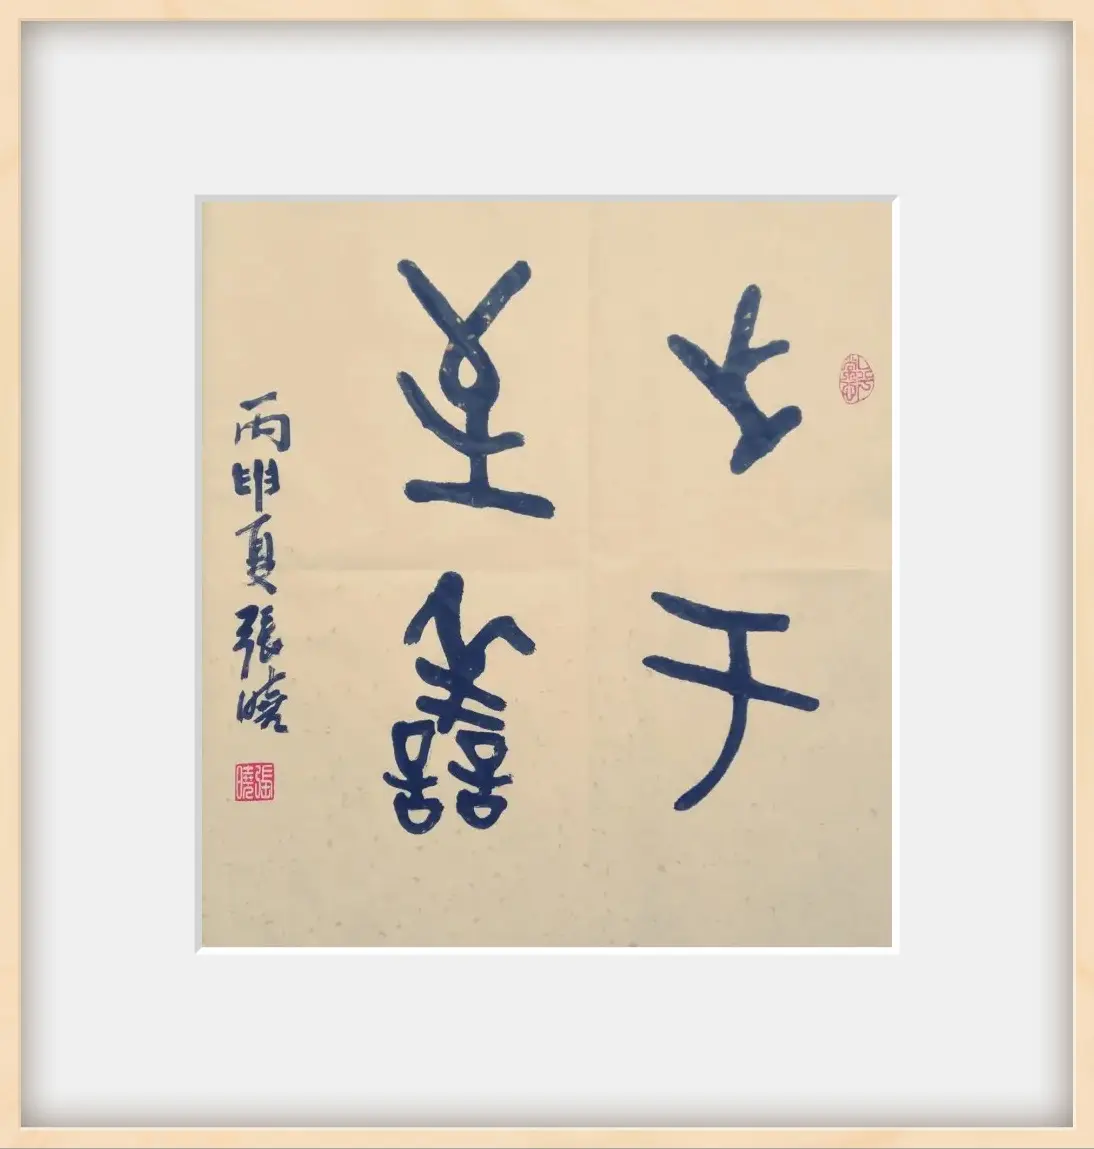 止于
至善
丙申夏張曉
張曉